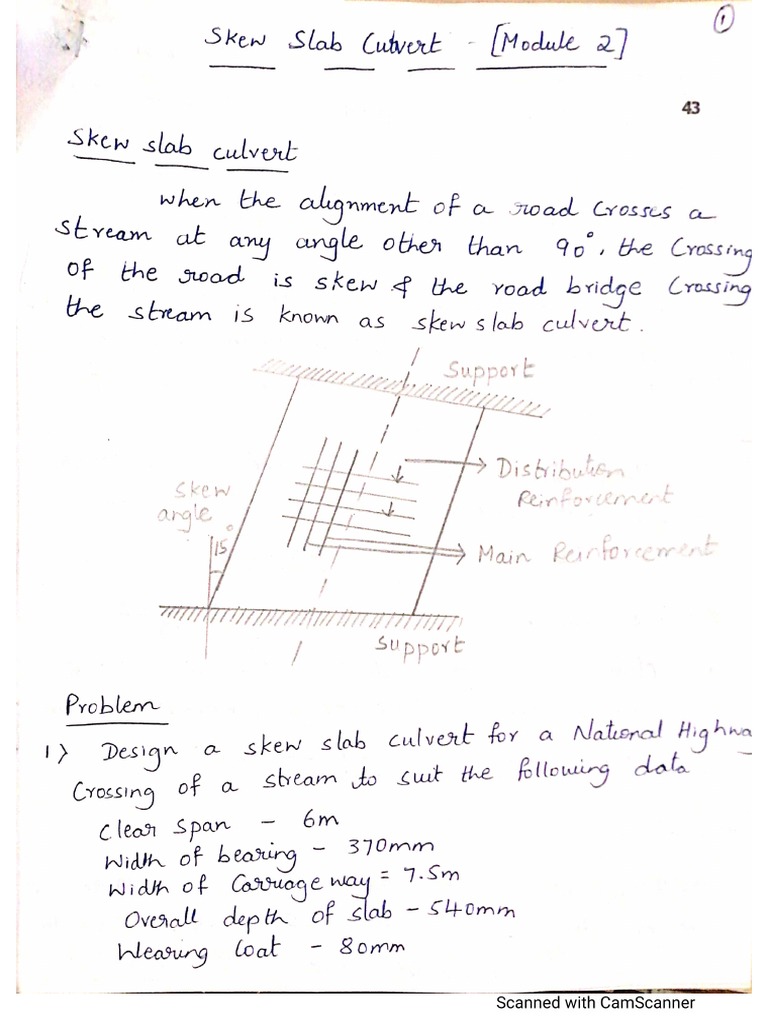 ①
Skew Slab Cutvert - [Module 2]
43
Skew slab culvert
When the alignment of a road crosses a
stream at any angle other than 90°, the crossing
of the road is skew & the road bridge crossing
the stream is known as skew slab culvert.
Support
Distribution
Reinforcement
Skew
angle
15°
Main Reinforcement
Support
Problem
1) Design a skew slab culvert for a National Highwa
Crossing of a stream to suit the following data
Clear span - 6m
Width of bearing - 370mm
Width of Carriage way = 7.5m
Overall depth of slab - 540mm
Wearing Coat - 80mm
Scanned with CamScanner